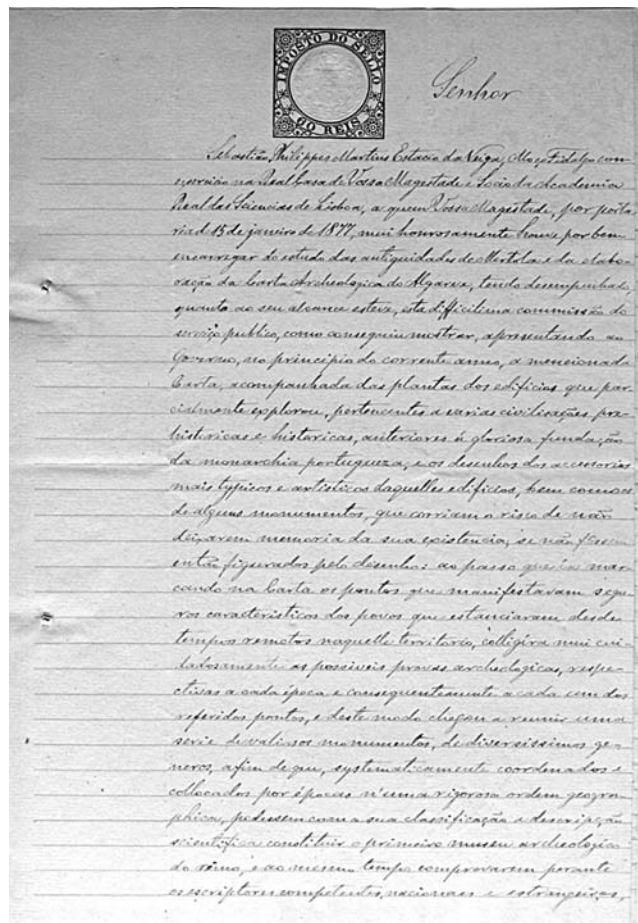 IMPOSTO DO SELLO
60 REIS
Senhor
Sebastião Philippes Martins Estacio da Veiga, Moço Fidalgo com
exercicio na Real Casa de Vossa Magestade e Socio da Academia
Real das Sciencias de Lisboa, a quem Vossa Magestade, por porta
ria de 15 de janeiro de 1877, mui honrosamente houve por bem
encarregar do estudo das antiguidades de Mertola e da elabo-
ração da Carta Archeologica do Algarve, tendo desempenhado,
quanto ao seu alcance esteve, esta difficilima commissão do
serviço publico, como conseguiu mostrar, apresentando ao
Governo, no principio do corrente anno, a mencionada
Carta, acompanhada das plantas dos edificios que par-
cialmente explorou, pertencentes a varias civilisações pre-
historicas e historicas, anteriores á gloriosa fundação
da monarchia portugueza, e os desenhos dos accessorios
mais typicos e artisticos daquelles edificios, bem como os
de alguns monumentos, que corriam o risco de não
deixarem memoria da sua existencia, se não fossem
então figurados pelo desenho: ao passo que ia mar-
cando na Carta os pontos que manifestavam segu-
ros caracteristicos dos povos que estanciaram desde
tempos remotos naquelle territorio, colligira mui cui-
dadosamente as possiveis provas archeologicas, respe-
ctivas a cada época e consequentemente a cada um dos
referidos pontos, e deste modo chegou a reunir uma
serie de valiosos monumentos, de diversissimos ge-
neros, a fim de que, systematicamente coordenados e
collocados por épocas n'uma rigorosa ordem geogra-
phica, podessem com a sua classificação e descripção
scientifica constituir o primeiro museu archeologico
do reino, e ao mesmo tempo comprovarem perante
os escriptores competentes, nacionaes e estrangeiros,